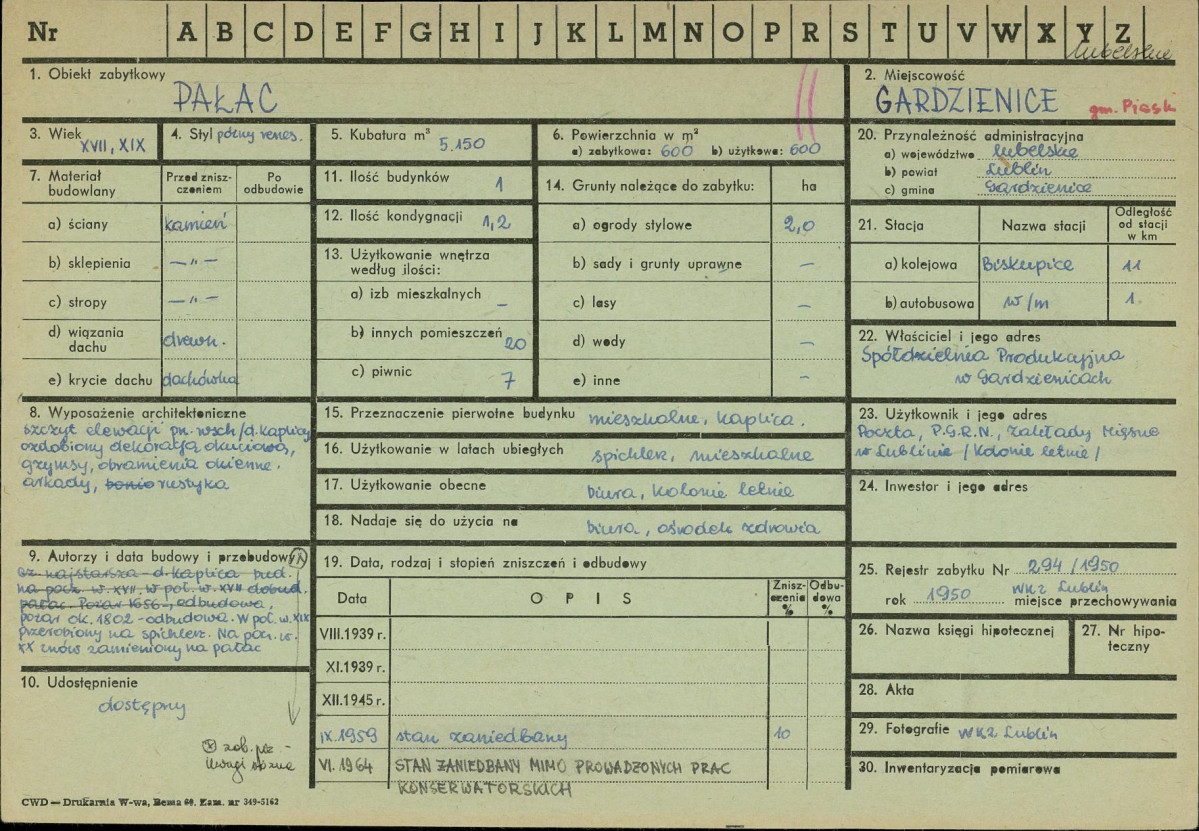 Nr A B C D E F G H I J K L M N O P R S T U V W X Y Z
lubelskie
1. Obiekt zabytkowy
PAŁAC
2. Miejscowość
GARDZIENICE gm. Piask
3. Wiek XVII, XIX
4. Styl późny renes.
5. Kubatura m³
5.150
6. Powierzchnia w m²
a) zabytkowa: 600 b) użytkowa: 600
20. Przynależność administracyjna
a) województwo lubelskie
b) powiat Lublin
c) gmina Gardzienice
7. Materiał budowlany
Przed zniszczeniem
Po odbudowie
a) ściany kamień
b) sklepienia —"—
c) stropy —"—
d) wiązania dachu drewn.
e) krycie dachu dachówka
11. Ilość budynków 1
12. Ilość kondygnacji 1,2
13. Użytkowanie wnętrza
według ilości:
a) izb mieszkalnych –
b) innych pomieszczeń 20
c) piwnic 7
14. Grunty należące do zabytku: ha
a) ogrody stylowe 2,0
b) sady i grunty uprawne –
c) lasy –
d) wody –
e) inne –
21. Stacja Nazwa stacji Odległość od stacji w km
a) kolejowa Biskupice 11
b) autobusowa w/m 1.
22. Właściciel i jego adres
Spółdzielnia Produkcyjna
w Gardzienicach
8. Wyposażenie architektoniczne
szczyt elewacji pn. wsch/d. kaplicy
ozdobiony dekoracją okuciową,
gzymsy, obramienia okienne.
arkady, bonio rustyka
15. Przeznaczenie pierwotne budynku mieszkalne, kaplica.
16. Użytkowanie w latach ubiegłych spichlerz, mieszkalne
17. Użytkowanie obecne biura, kolonie letnie
18. Nadaje się do użycia na biura, ośrodek zdrowia
23. Użytkownik i jego adres
Poczta, P.G.R.N., Zakłady Mięsne
w Lublinie /Kolonie letnie/
24. Inwestor i jego adres
9. Autorzy i data budowy i przebudowy
cz. najstarsza - d. kaplica bud.
na pocz. w. XVII, w poł. w. XVII dobud.
pałac. Pożar 1656-, odbudowa,
pożar ok. 1802 - odbudowa. W poł. w. XIX
przerobiony na spichlerz. Na pocz. w.
XX znów zamieniony na pałac
10. Udostępnienie
dostępny
zob. pkt. -
Uwagi różne
19. Data, rodzaj i stopień zniszczeń i odbudowy
Data OPIS Zniszczenia % Odbudowa %
VIII.1939 r.
XI.1939 r.
XII.1945 r.
IX.1959 stan zaniedbany 10
VI. 1964 STAN ZANIEDBANY MIMO PROWADZONYCH PRAC
KONSERWATORSKICH
25. Rejestr zabytku Nr 294/1950
rok 1950 WKZ Lublin
miejsce przechowywania
26. Nazwa księgi hipotecznej
27. Nr hipoteczny
28. Akta
29. Fotografie WKZ Lublin
30. Inwentaryzacja pomiarowa
CWD — Drukarnia W-wa, Bema 60. Zam. nr 349-5162